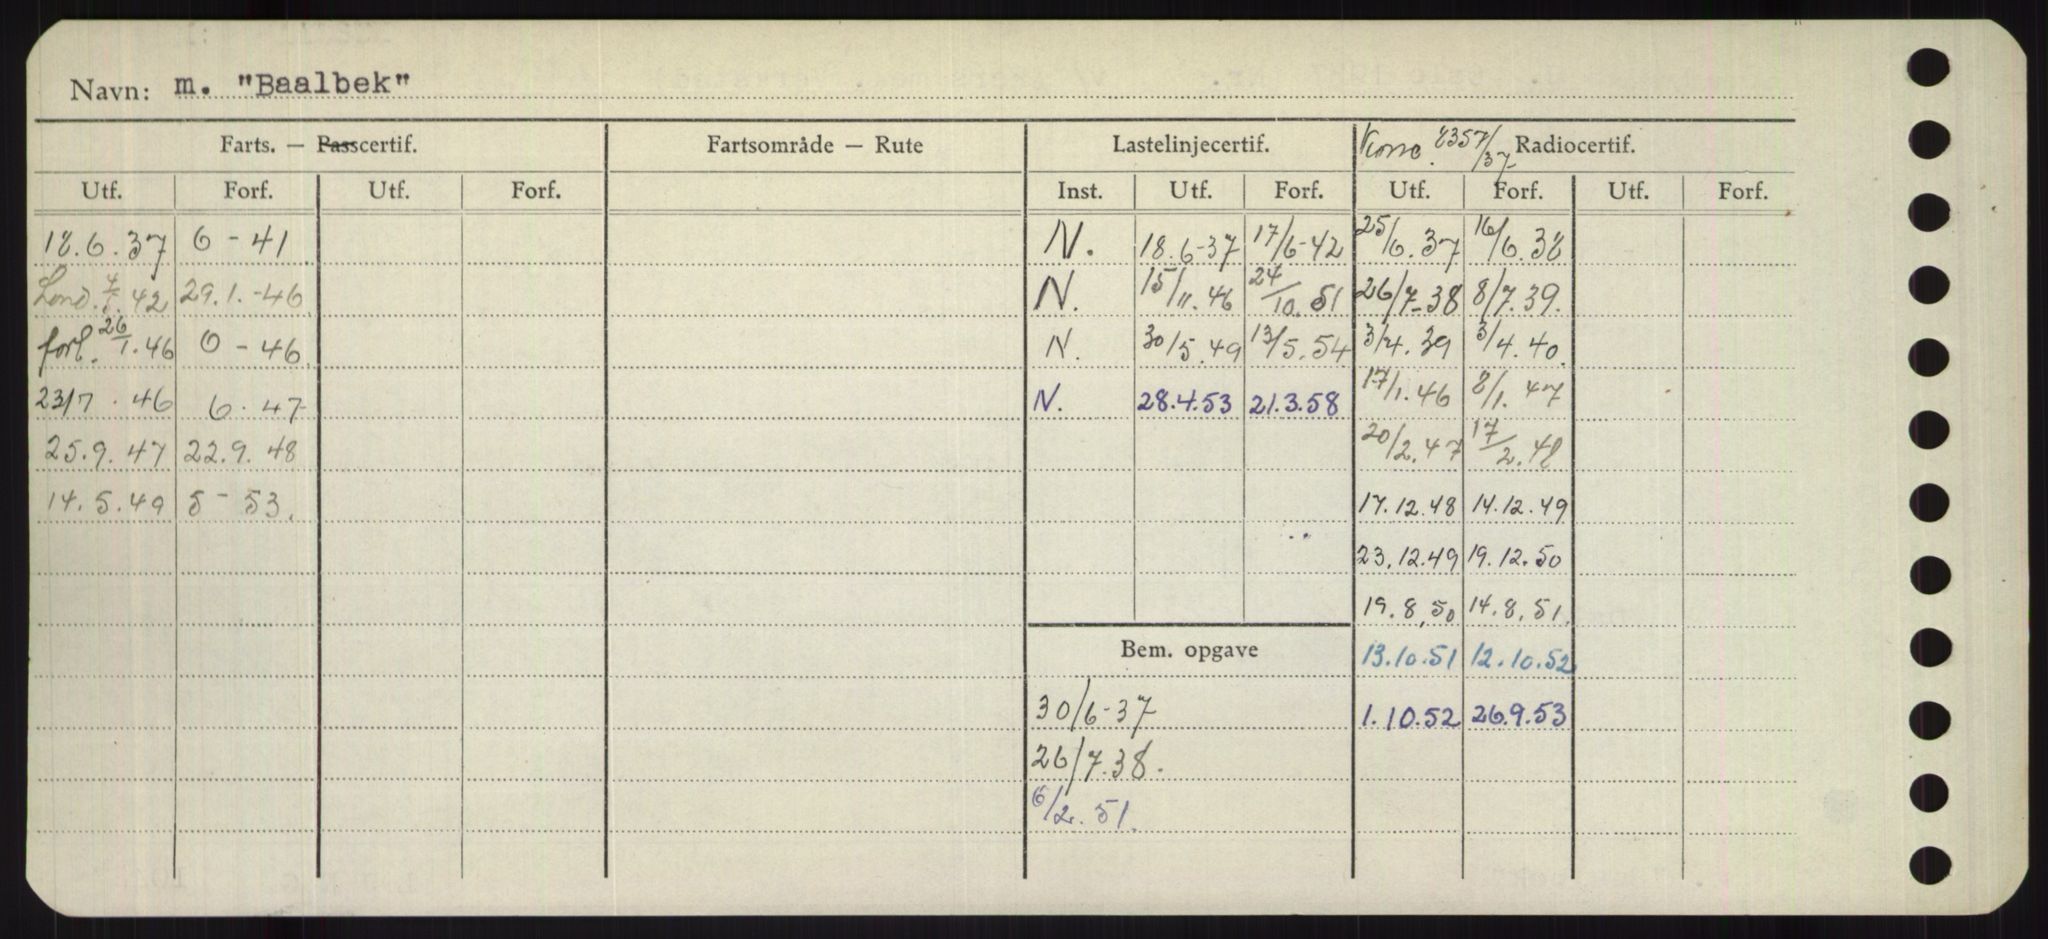 Navn: m. "Baalbek"
Farts. — Passcertif. Fartsområde — Rute Lastelinjecertif. 2357/37 Radiocertif.
Utf. Forf. Utf. Forf. Inst. Utf. Forf. Utf. Forf. Utf. Forf.
18.6.37 6-41 N. 18.6-37 17/6-42 25/6.37 16/6.38
Lond. 42 29.1.-46 N. 15/11.46 24/10.51 26/7-38 8/7.39.
forl. 26/1.46 6-46. N. 30/5.49 13/5.54 3/4.39 3/4.40.
23/7.46 6.47 N. 28.4.53 21.3.58 17/1.46 8/1.47
25.9.47 22.9.48 20/2.47 17/2.48
14.5.49 5-53. 17.12.48 14.12.49
23.12.49 19.12.50
19.8.50 14.8.51.
Bem. opgave 13.10.51 12.10.52
30/6-37 1.10.52 26.9.53
26/7.38.
6/2.51.